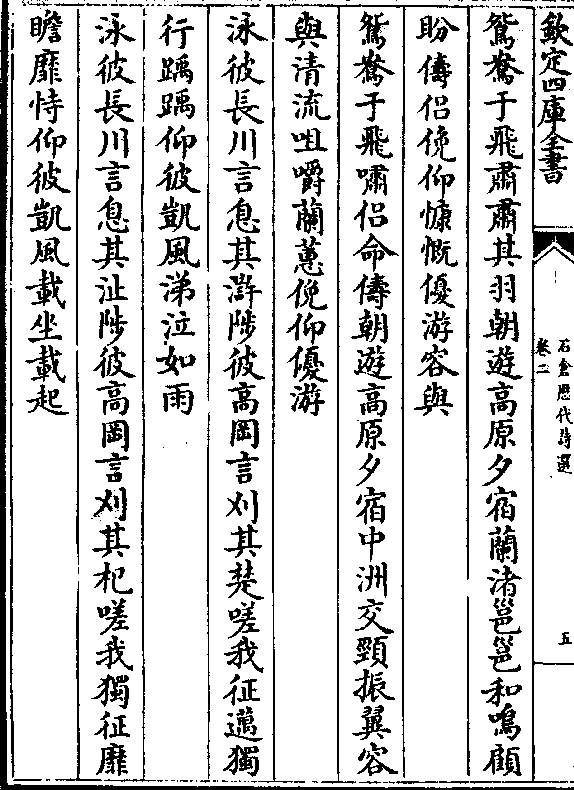 欽定四庫全書
石倉歷代詩選
卷二
五
鴛鴦于飛肅肅其羽朝遊高原夕宿蘭渚邕邕和鳴顧
盼儔侶俛仰慷慨優游容與
鴛鴦于飛嘯侶命儔朝遊高原夕宿中洲交頸振翼容
與清流咀嚼蘭蕙俛仰優游
泳彼長川言息其滸陟彼高岡言刈其楚嗟我征邁獨
行踽踽仰彼凱風涕泣如雨
泳彼長川言息其沚陟彼高岡言刈其杞嗟我獨征靡
瞻靡恃仰彼凱風載坐載起